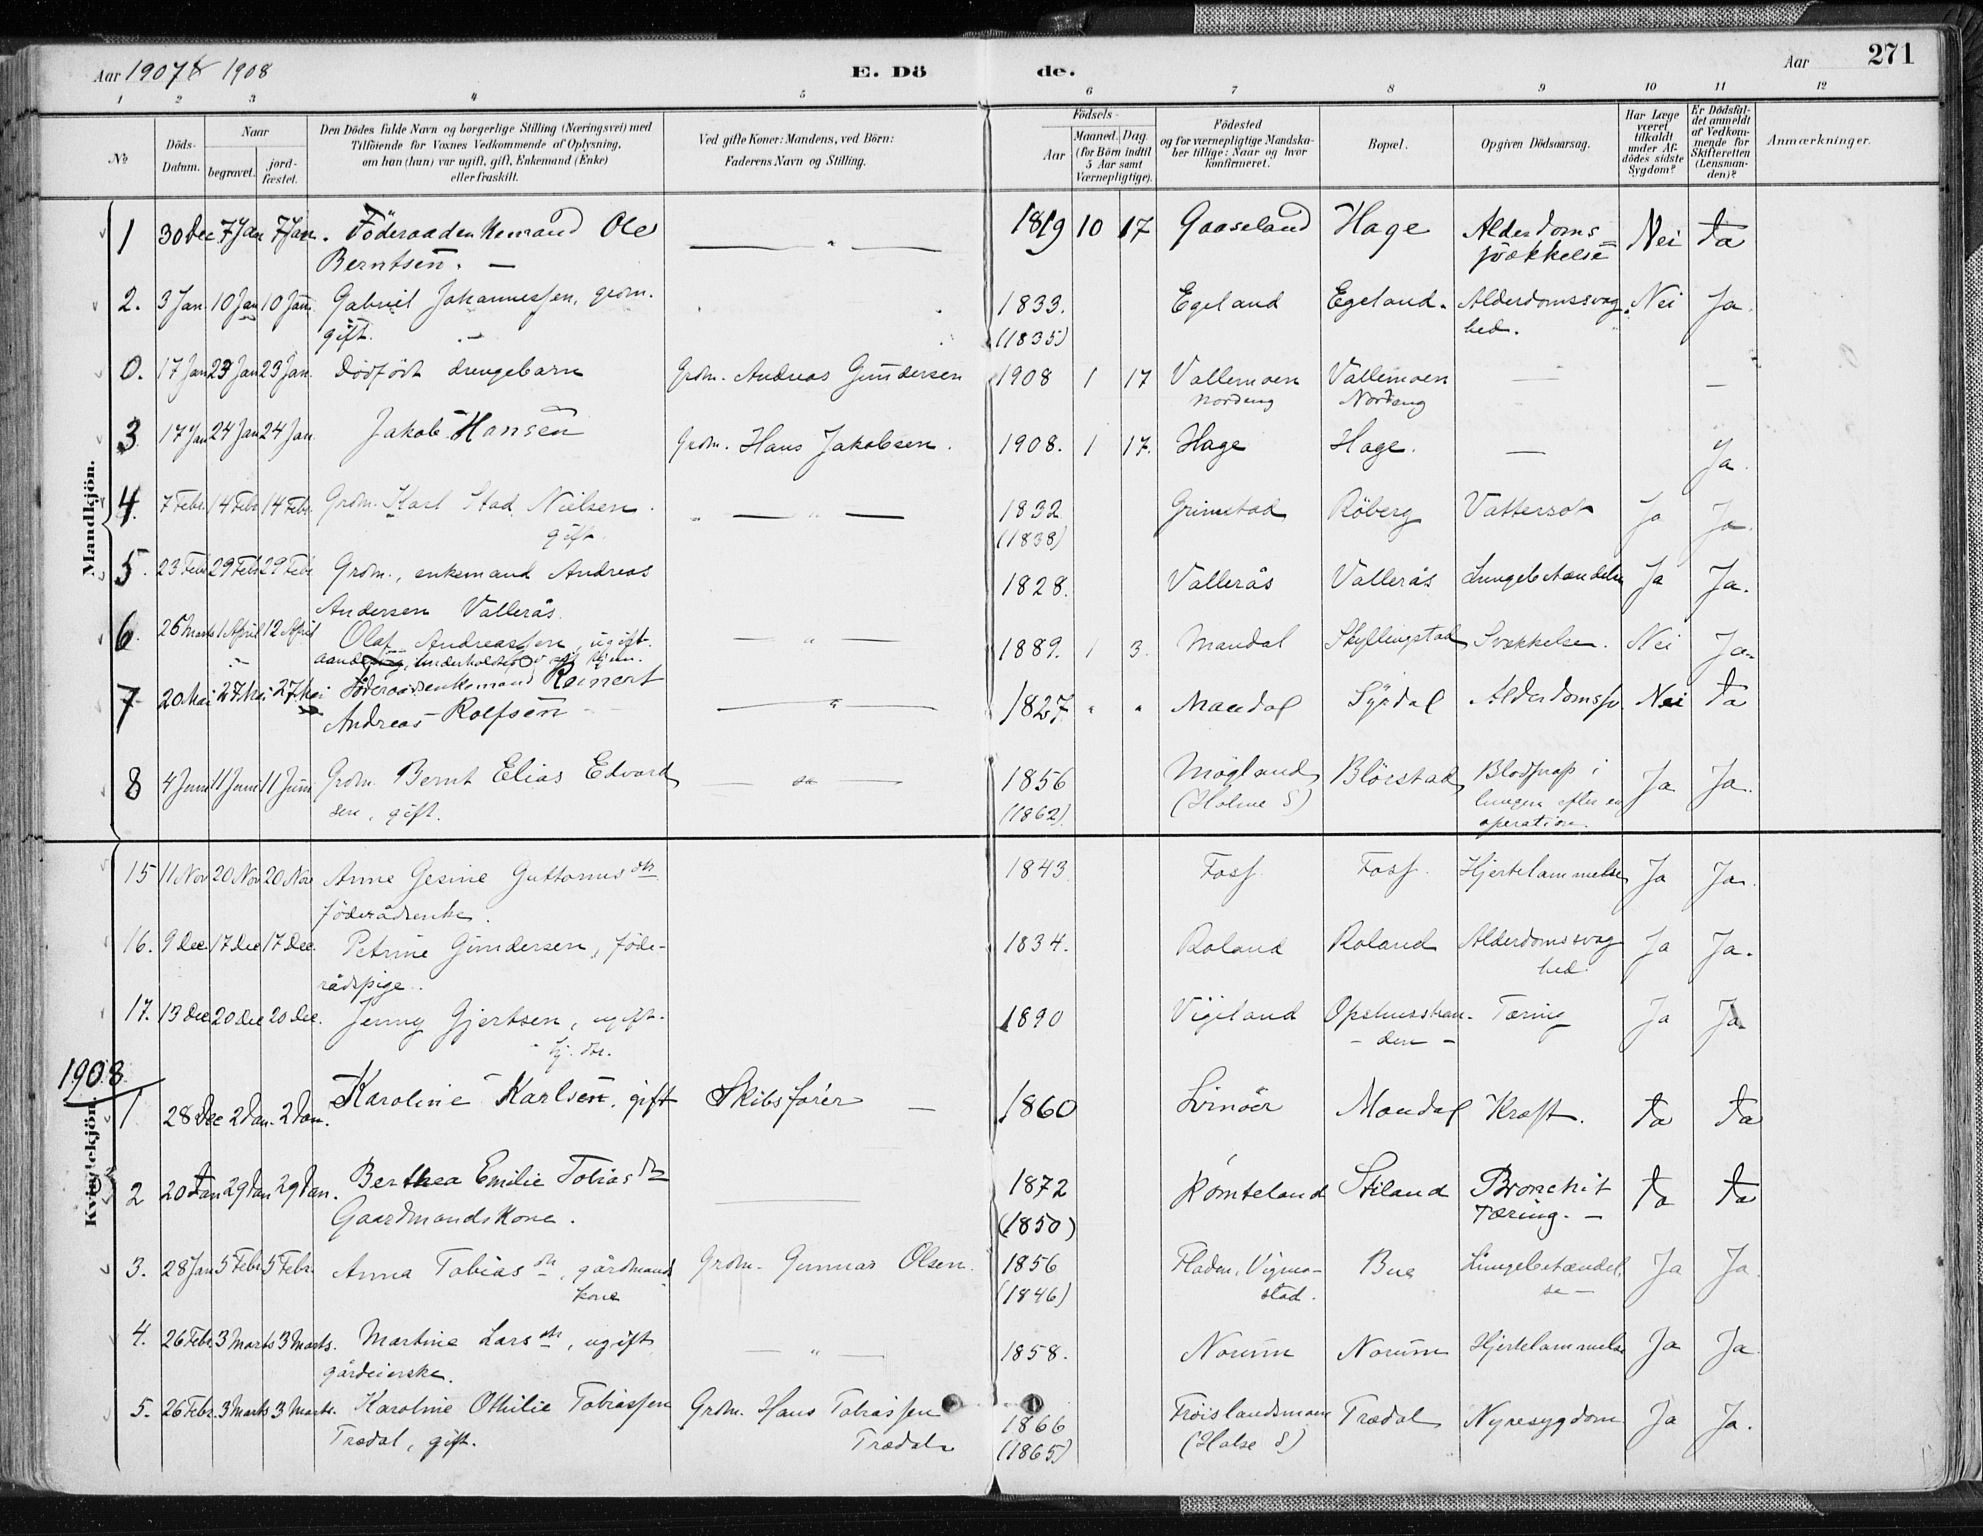 Aar 1907 & 1908 E. Dö de. Aar 271
1 2 3 4 5 6 7 8 9 10 11 12
No
Döds-Datum.
Naar
begravet.
jord-fæstet.
Den Dödes fulde Navn og borgerlige Stilling (Næringsvei) med
Tilföiende for Voxnes Vedkommende af Oplysning,
om han (hun) var ugift, gift, Enkemand (Enke)
eller fraskilt.
Ved gifte Koner: Mandens, ved Börn:
Faderens Navn og Stilling.
Födsels-
Aar
Maaned. Dag.
(for Börn indtil
5 Aar samt
Værnepligtige).
Födested
og for værnepligtige Mandska-
ber tillige: Naar og hvor
konfirmeret.
Bopæl.
Opgiven Dödsaarsag.
Har Læge
været
tilkaldt
under Af-
dödes sidste
Sygdom?
Er Dödsfal-
det anmeldt
af Vedkom-
mende for
Skifteretten
(Lensman-
den)?
Anmærkninger.
Mandkjön.
1 30 Dec 7 Jan 7 Jan. Föderaadenkemand Ole — " — 1819 10 17 Gaaseland Hage Alderdoms Nei Ja
Berntsen. — svækkelse
2. 3 Jan 10 Jan 10 Jan Gabriel Johannessen, grdm. 1833. Egeland Egeland. Alderdomssvag Nei Ja.
gift. (1835) hed.
0. 17 Jan 23 Jan 23 Jan. Dödfödt drengebarn Grdm. Andreas Gundersen 1908 1 17 Vallemoen Vallemoen — —
Nordeng Nordeng
3 17 Jan 24 Jan 24 Jan. Jakob Hansen Grdm. Hans Jakobsen. 1908. 1 17. Hage Hage. — Ja.
4. 7 Febr. 14 Febr 14 Febr. Grdm. Karl Stad Nielsen. — " — 1832 Grimstad Röberg Vattersot Ja Ja.
gift. (1838)
5. 23 Febr 29 Febr 29 Febr Grdm., enkemand Andreas 1828. Vallerås Vallerås Lungebetændelse Ja Ja.
Andersen Vallerås.
6. 26 Marts 1 April 12 April Olaf Andreassen, ugift. — " — 1889. 1 3. Mandal Skjllingstad Svækkelse. Nei Ja.
7 20 Mai 27 Mai 27 Mai Föderaadsenkemand Reinert — " — 1827 " " Mandal Syrdal Alderdomssv Nei Ja
Andreas Rolfsen
8 4 Juni 11 Juni 11 Juni Grdm. Bernt Elias Edvard — " — 1856 Mögland Blörstad Blodprop i Ja Ja.
sen, gift. (1862). (Holme S) lungen efter en
operation.
Kvindekjön.
15 11 Nov 20 Nov 20 Nov Anne Gesine Guttormsdtr 1843. Foss Foss. Hjertelammelse Ja Ja.
föderådsenke.
16. 9 Dec 17 Dec 17 Dec. Petrine Gundersen, föde- 1834. Roland Roland Alderdomssvag Ja Ja.
rådspige. hed.
17. 13 Dec 20 Dec 20 Dec. Jenny Gjertsen, ugift. 1890 Vigeland Opshusstran- Tæring Ja Ja.
hj. dtr. — den —
1908
1 28 Dec 2 Jan. 2 Jan. Karoline Karlsen, gift Skibsförer — 1860 Svinöer Mandal Kræft. Ja Ja
2 20 Jan 29 Jan 29 Jan. Berthea Emilie Tobiasdtr 1872 Römteland Stiland Bronchit Ja Ja
Gaardmandskone. (1850) Tæring. —
3. 28 Jan 5 Febr 5 Febr. Anna Tobiasdtr, gårdmands Grdm. Gunnar Olsen. 1856 Fladen, Vigmo- Bue Lungebetændel Ja Ja.
kone (1846) stad. se —
4. 26 Febr. 3 Marts 3 Marts. Martine Larsdtr, ugift — " — 1858. Norum Norum Hjertelammelse Ja Ja.
gårdeierske.
5. 26 Febr. 3 Marts 3 Marts. Karoline Othilie Tobiassen Grdm. Hans Tobiassen 1866 Fröislandsmoen Trædal Nyresygdom Ja Ja.
Trædal, gift. Trædal (1865) (Halse S)